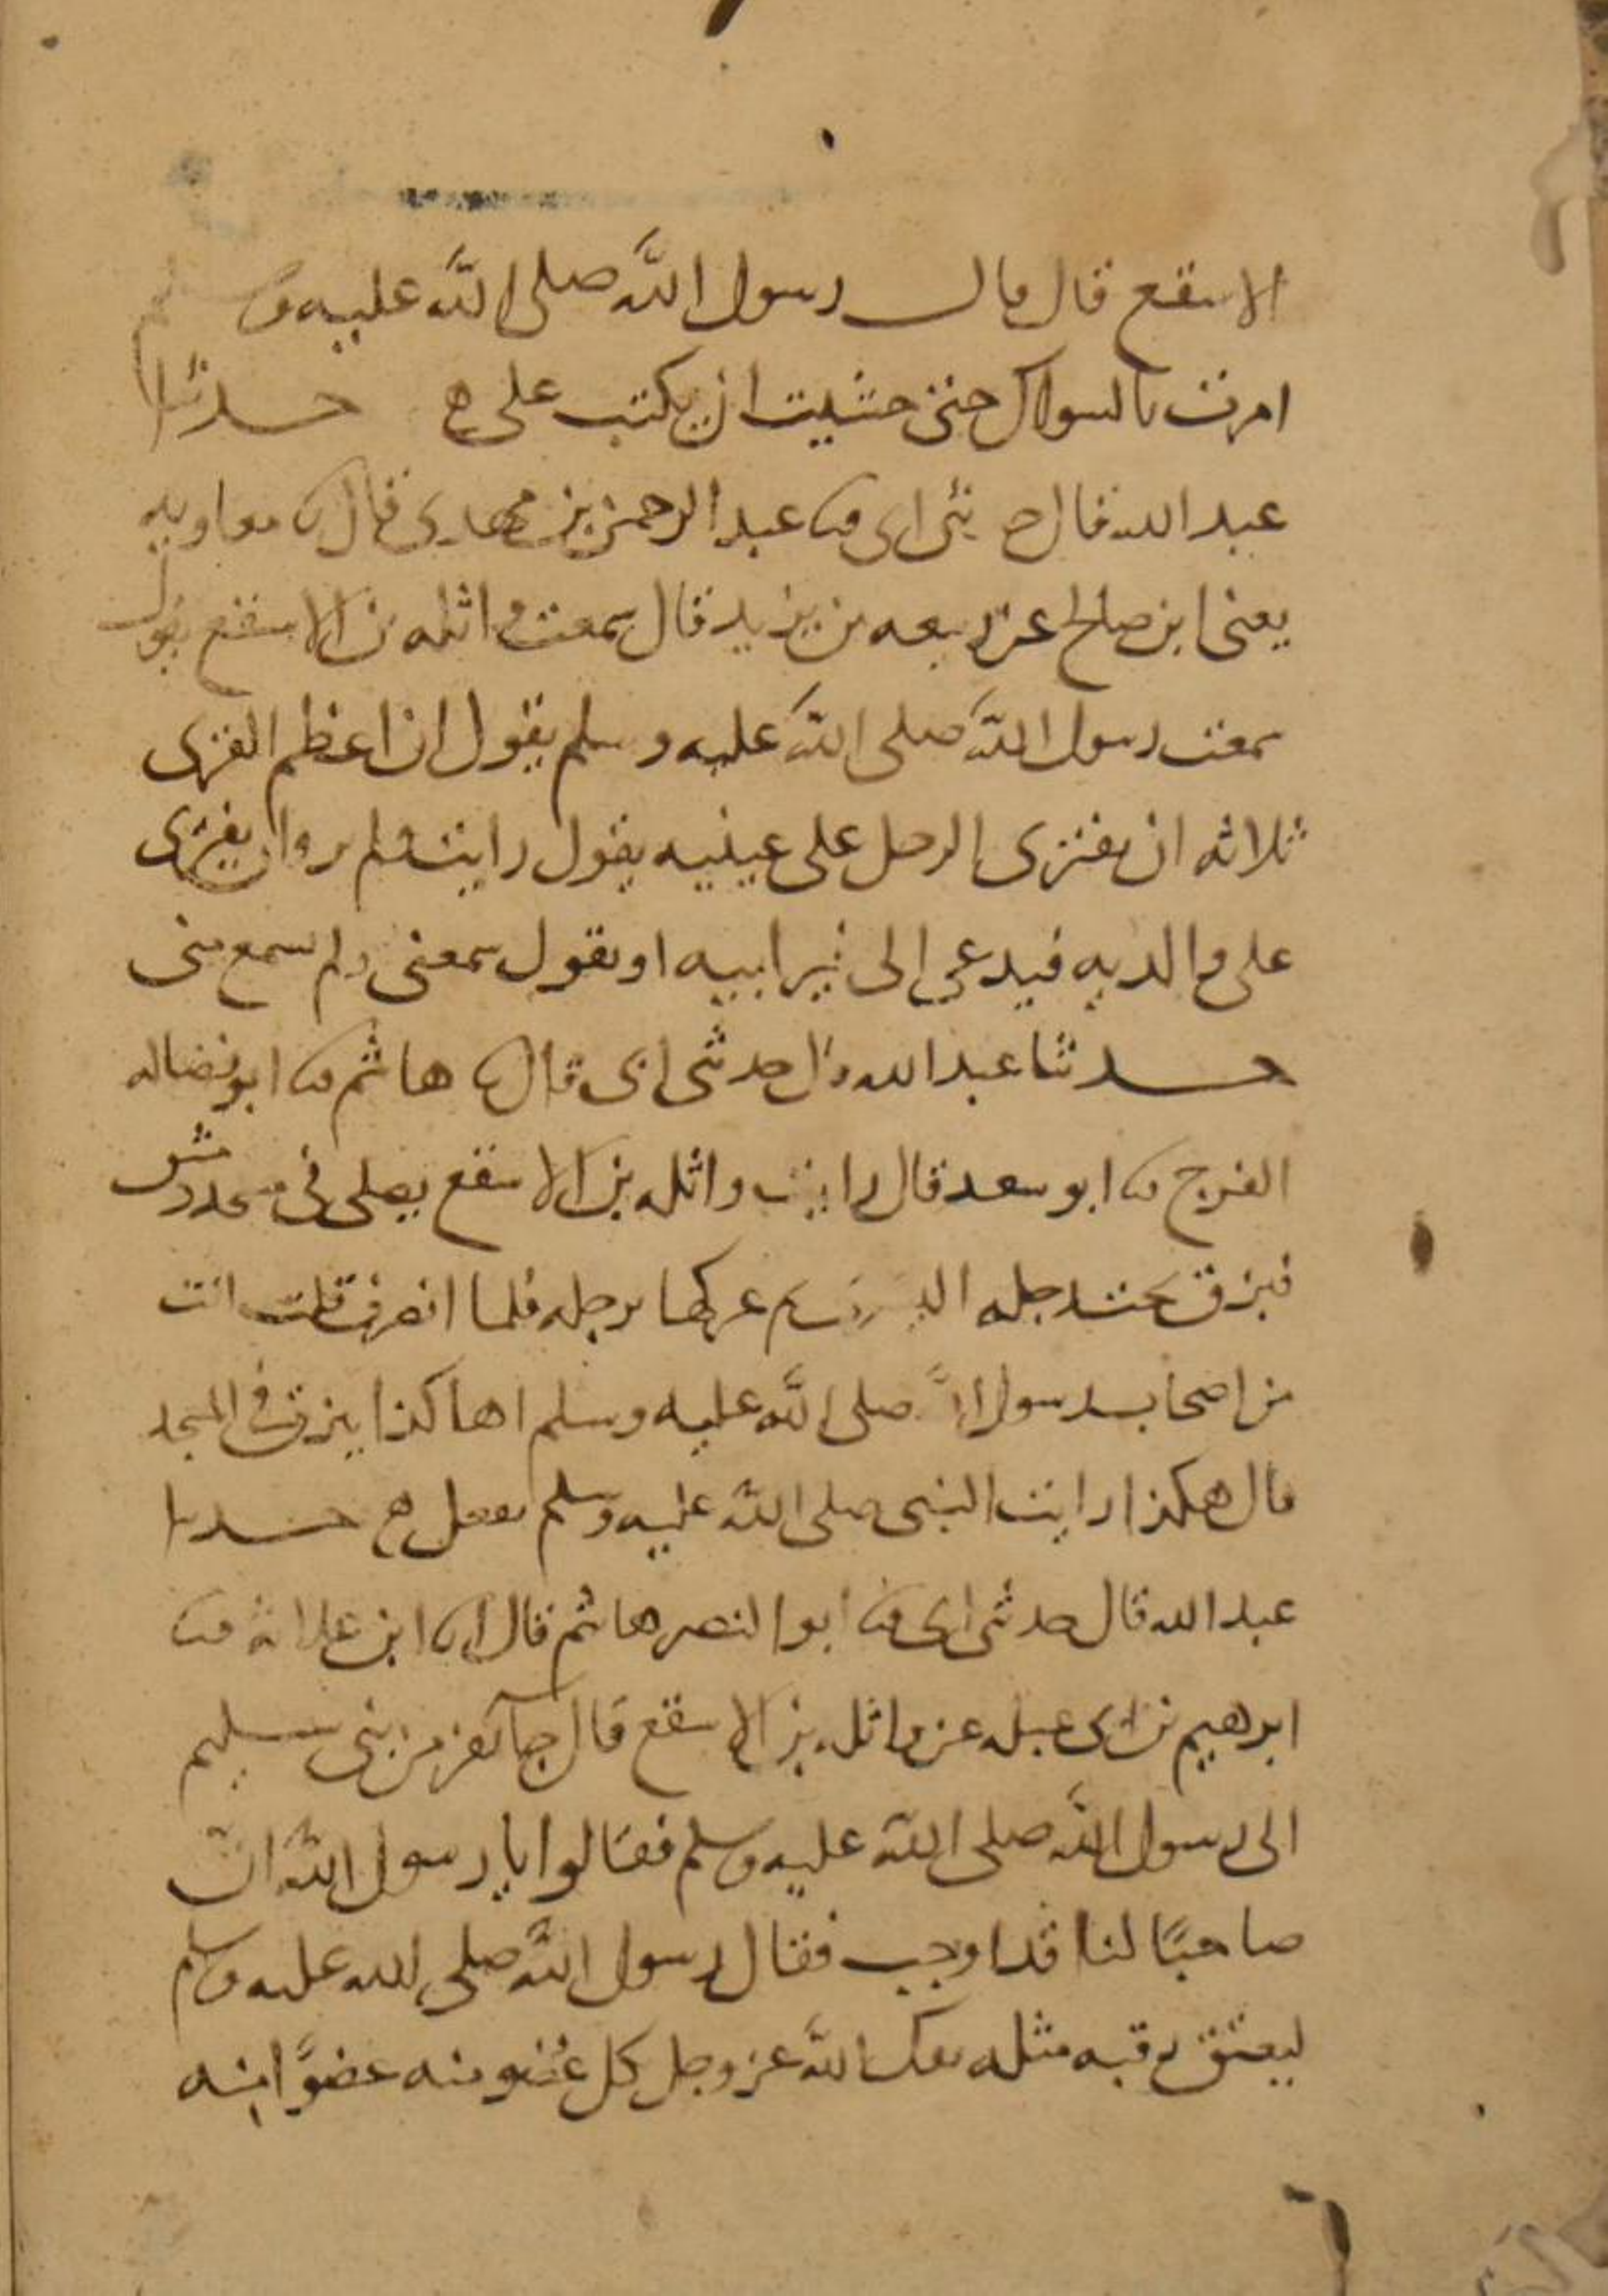 الاسقع قال قال رسول الله صلى الله عليه وسلم
امرت بالسواك حتى خشيت ان يكتب على ه حدثنا
عبد الله قال حدثنى ابى ثنا عبد الرحمن بن مهدى قال ثنا معاويه
يعنى ابن صالح عن ربيعه بن يزيد قال سمعت واثله بن الاسقع يقول
سمعت رسول الله صلى الله عليه وسلم يقول ان اعظم الفرى
ثلاثه ان يفترى الرجل على عينيه يقول رايت ولم ير وان يفترى
على والديه فيدعى الى غير ابيه او يقول سمعنى ولم يسمع منى
حدثنا عبد الله قال حدثنى ابى قال ثنا هاشم ثنا ابو فضاله
الفرج ثنا ابو سعد قال رايت واثله بن الاسقع يصلى فى مسجد دمشق
فبزق تحت رجله اليسرى ثم عركها برجله فلما انصرف قلت انت
من اصحاب رسول الله صلى الله عليه وسلم اهاكذا يبزق فى المسجد
قال هكذا رايت النبى صلى الله عليه وسلم يفعل ه حدثنا
عبد الله قال حدثنى ابى ثنا ابو النصر هاشم قال ثنا ابن علاثه ثنا
ابرهيم بن ابى عبله عن واثله بن الاسقع قال جا نفر من بنى سليم
الى رسول الله صلى الله عليه وسلم فقالوا يا رسول الله ان
صاحبًا لنا قد اوجب فقال رسول الله صلى الله عليه وسلم
ليعتق رقبه مثله يفك الله عز وجل كل عضو منه عضوًا منه